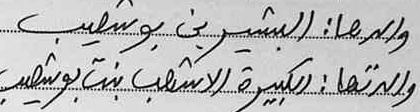 والدها: البشير بن بوشعيب
والدتها: الكبيرة الاشهب بنت بوشعيب